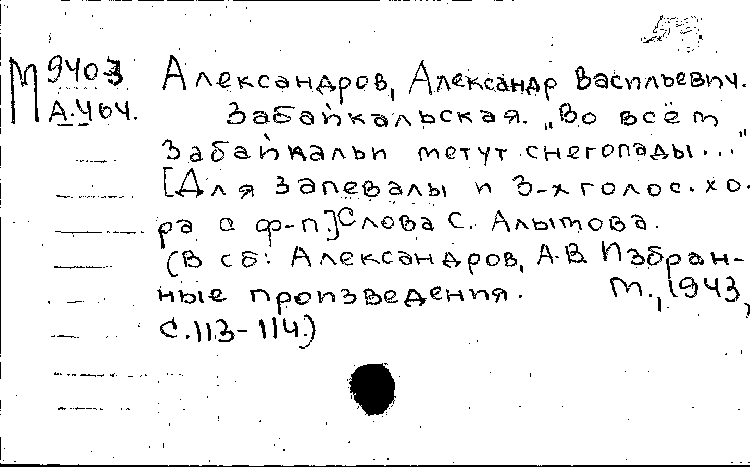 М 9403
А.464.
Александров, Александр Васильевич.
Забайкальская. „Во всём
Забайкальи метут снегопады..."
[Для запевалы и 3-х голос. хо-
ра с ф-п.] Слова С. Алымова.
(В сб: Александров, А.В. Избран-
ные произведения. М., 1943,
с. 113-114.)